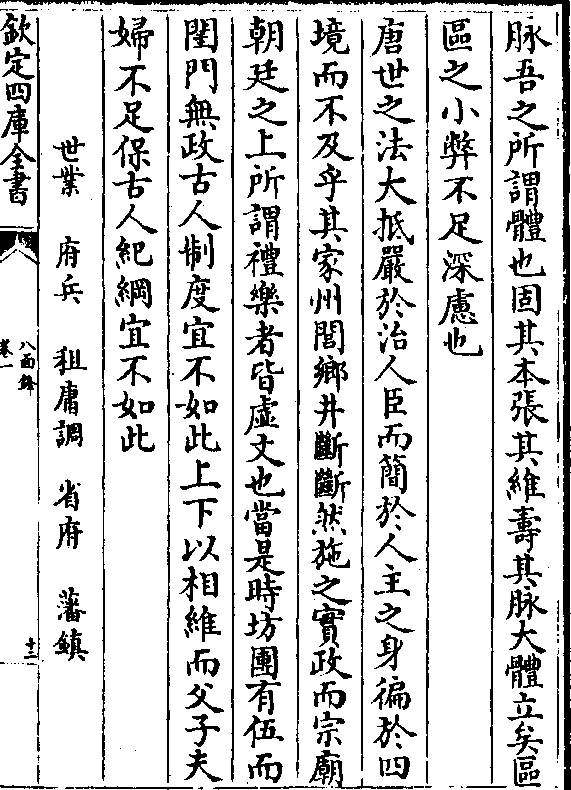 脉吾之所謂體也固其本張其維壽其脉大體立矣區
區之小弊不足深慮也
唐世之法大抵嚴於治人臣而簡於人主之身徧於四
境而不及乎其家州閭鄉井斷斷然施之實政而宗廟
朝廷之上所謂禮樂者皆虚文也當是時坊團有伍而
閨門無政古人制度宜不如此上下以相維而父子夫
婦不足保古人紀綱宜不如此
世業 府兵 租庸調 省府 藩鎮
欽定四庫全書
八面鋒
卷一
十三